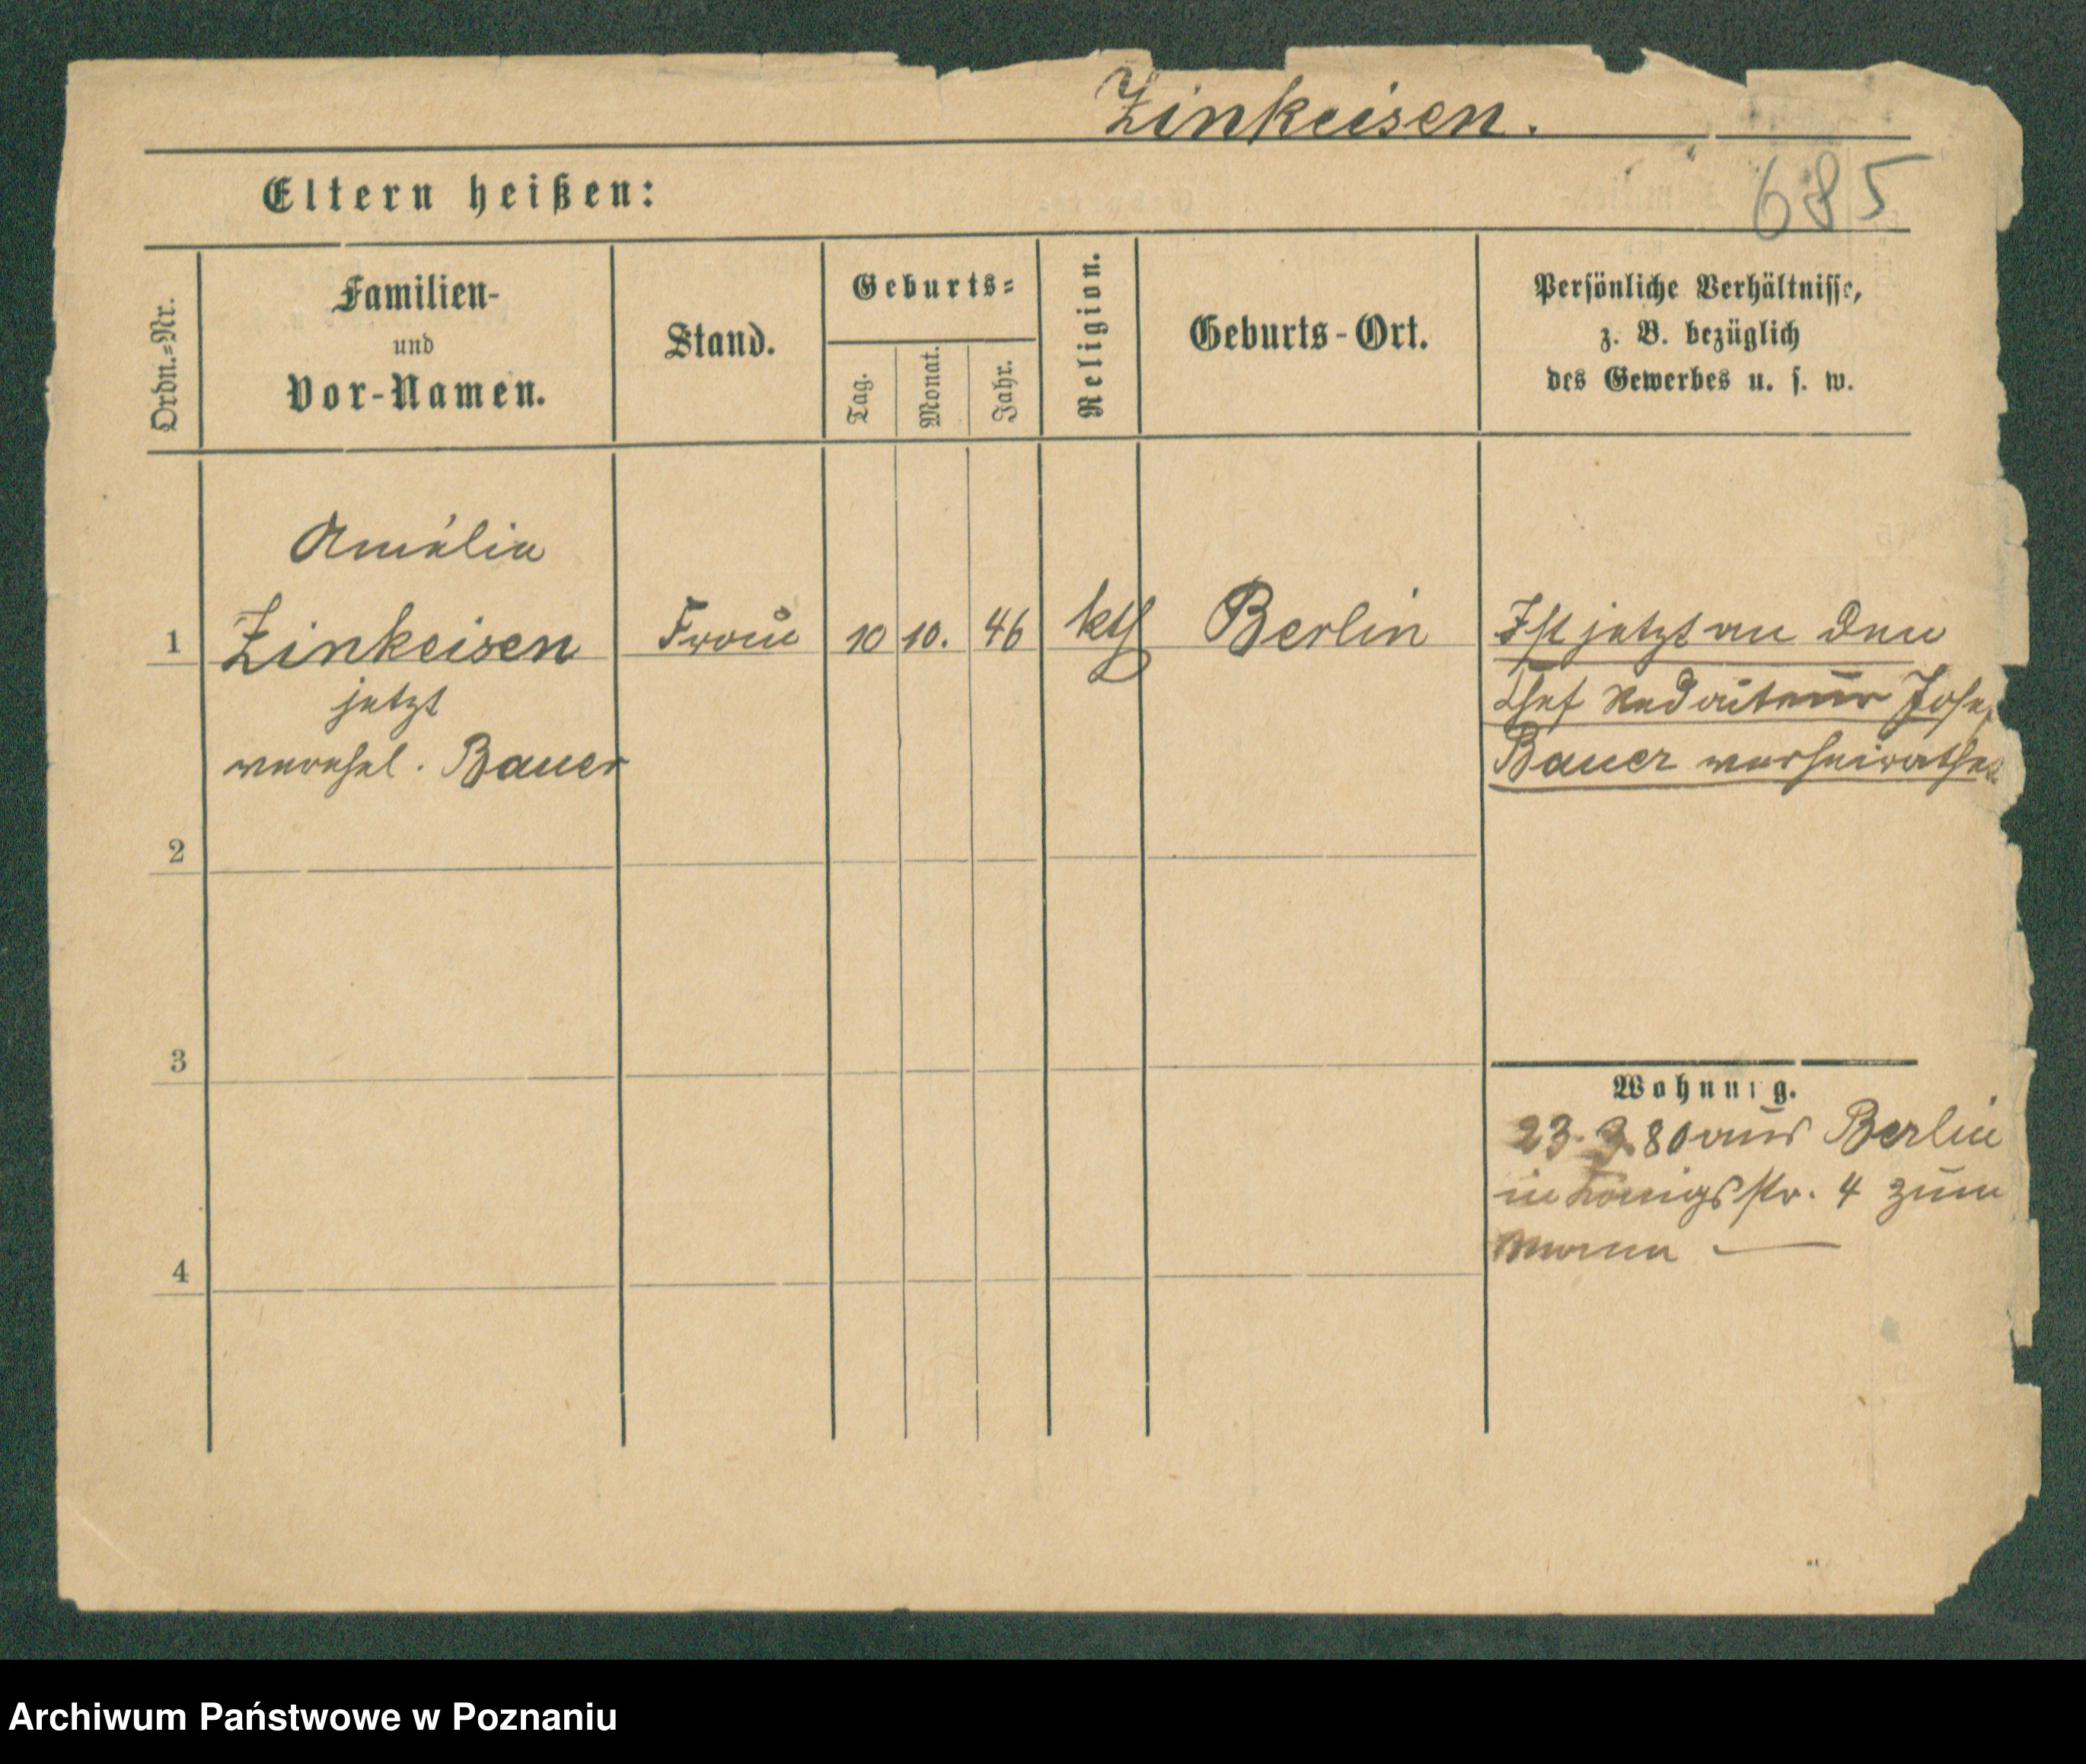 Zinkeisen.
Eltern heißen:
685
Ordn.=Nr.
Familien-
und
Vor-Namen.
Stand.
Geburts=
Tag.
Monat.
Jahr.
Religion.
Geburts-Ort.
Persönliche Verhältnisse,
z. B. bezüglich
des Gewerbes u. s. w.
Amalie
1 Zinkeisen Frau 10 10. 46 kth Berlin
jetzt
verehel. Bauer
Ist jetzt an den
Chef Redakteur Josep
Bauer verheirathet
2
3
4
Wohnung.
23. 3. 80 aus Berlin
in Königsstr. 4 zum
Mann —
Archiwum Państwowe w Poznaniu